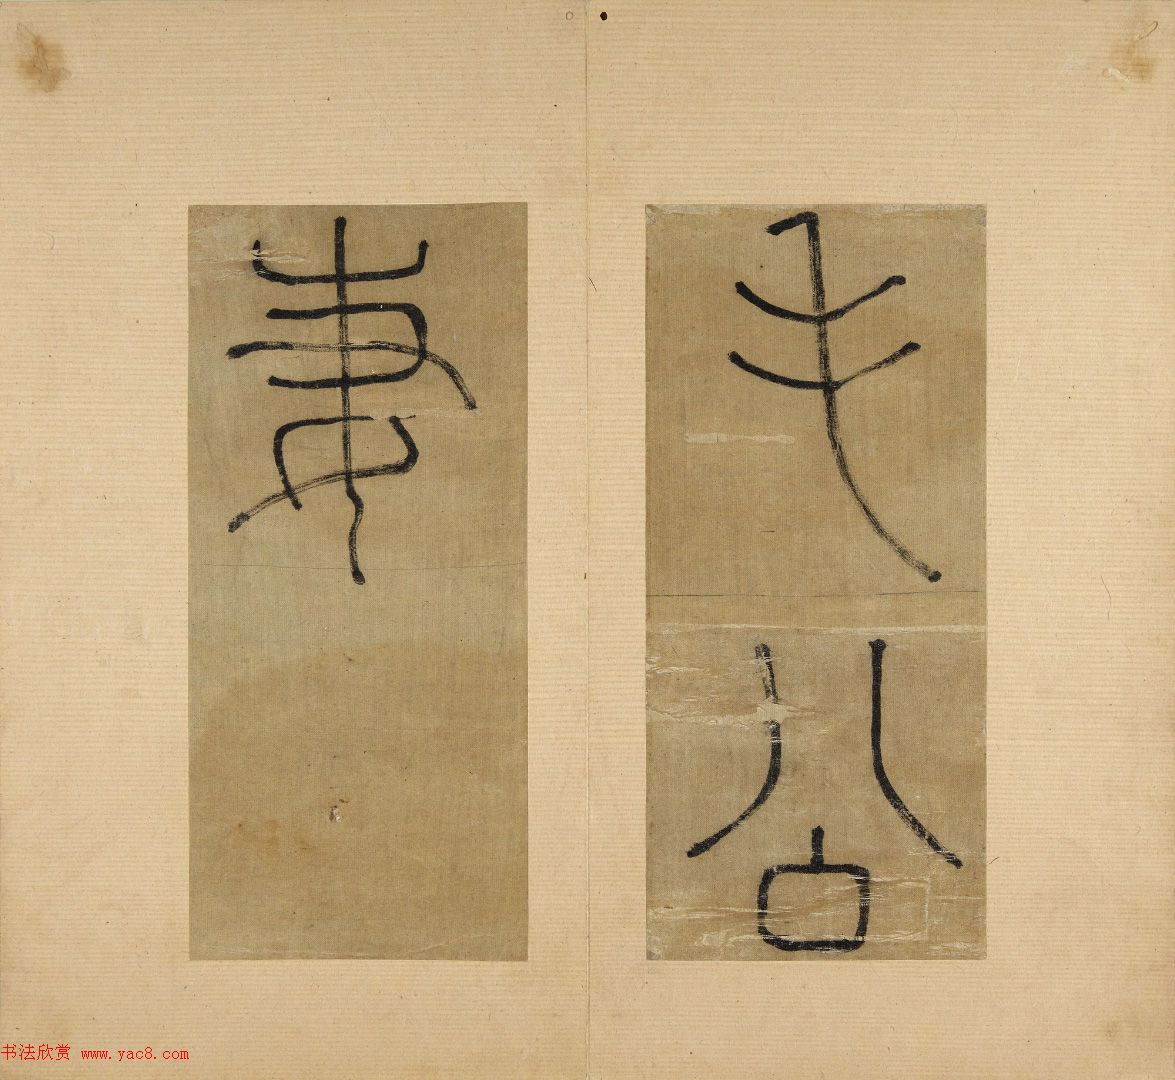 毛公
妻
书法欣赏 www.yac8.com